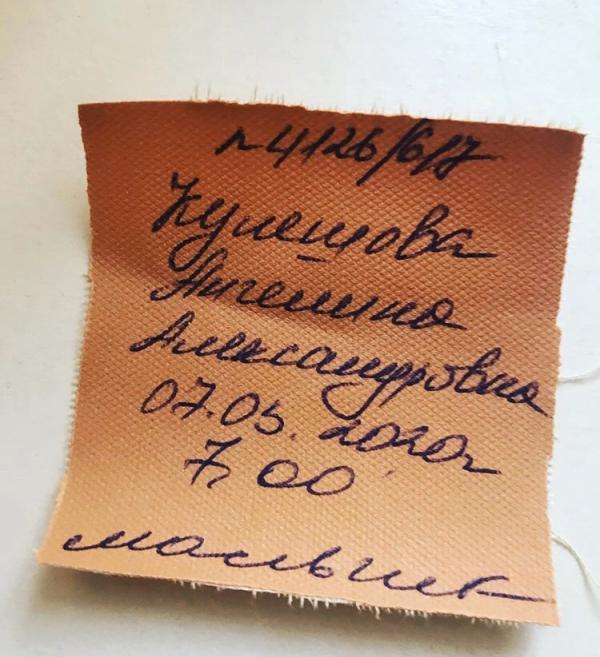 n 4126/617
Кулешова
Ангелина
Александровна
07.05.2020г
7, 00
мальчик